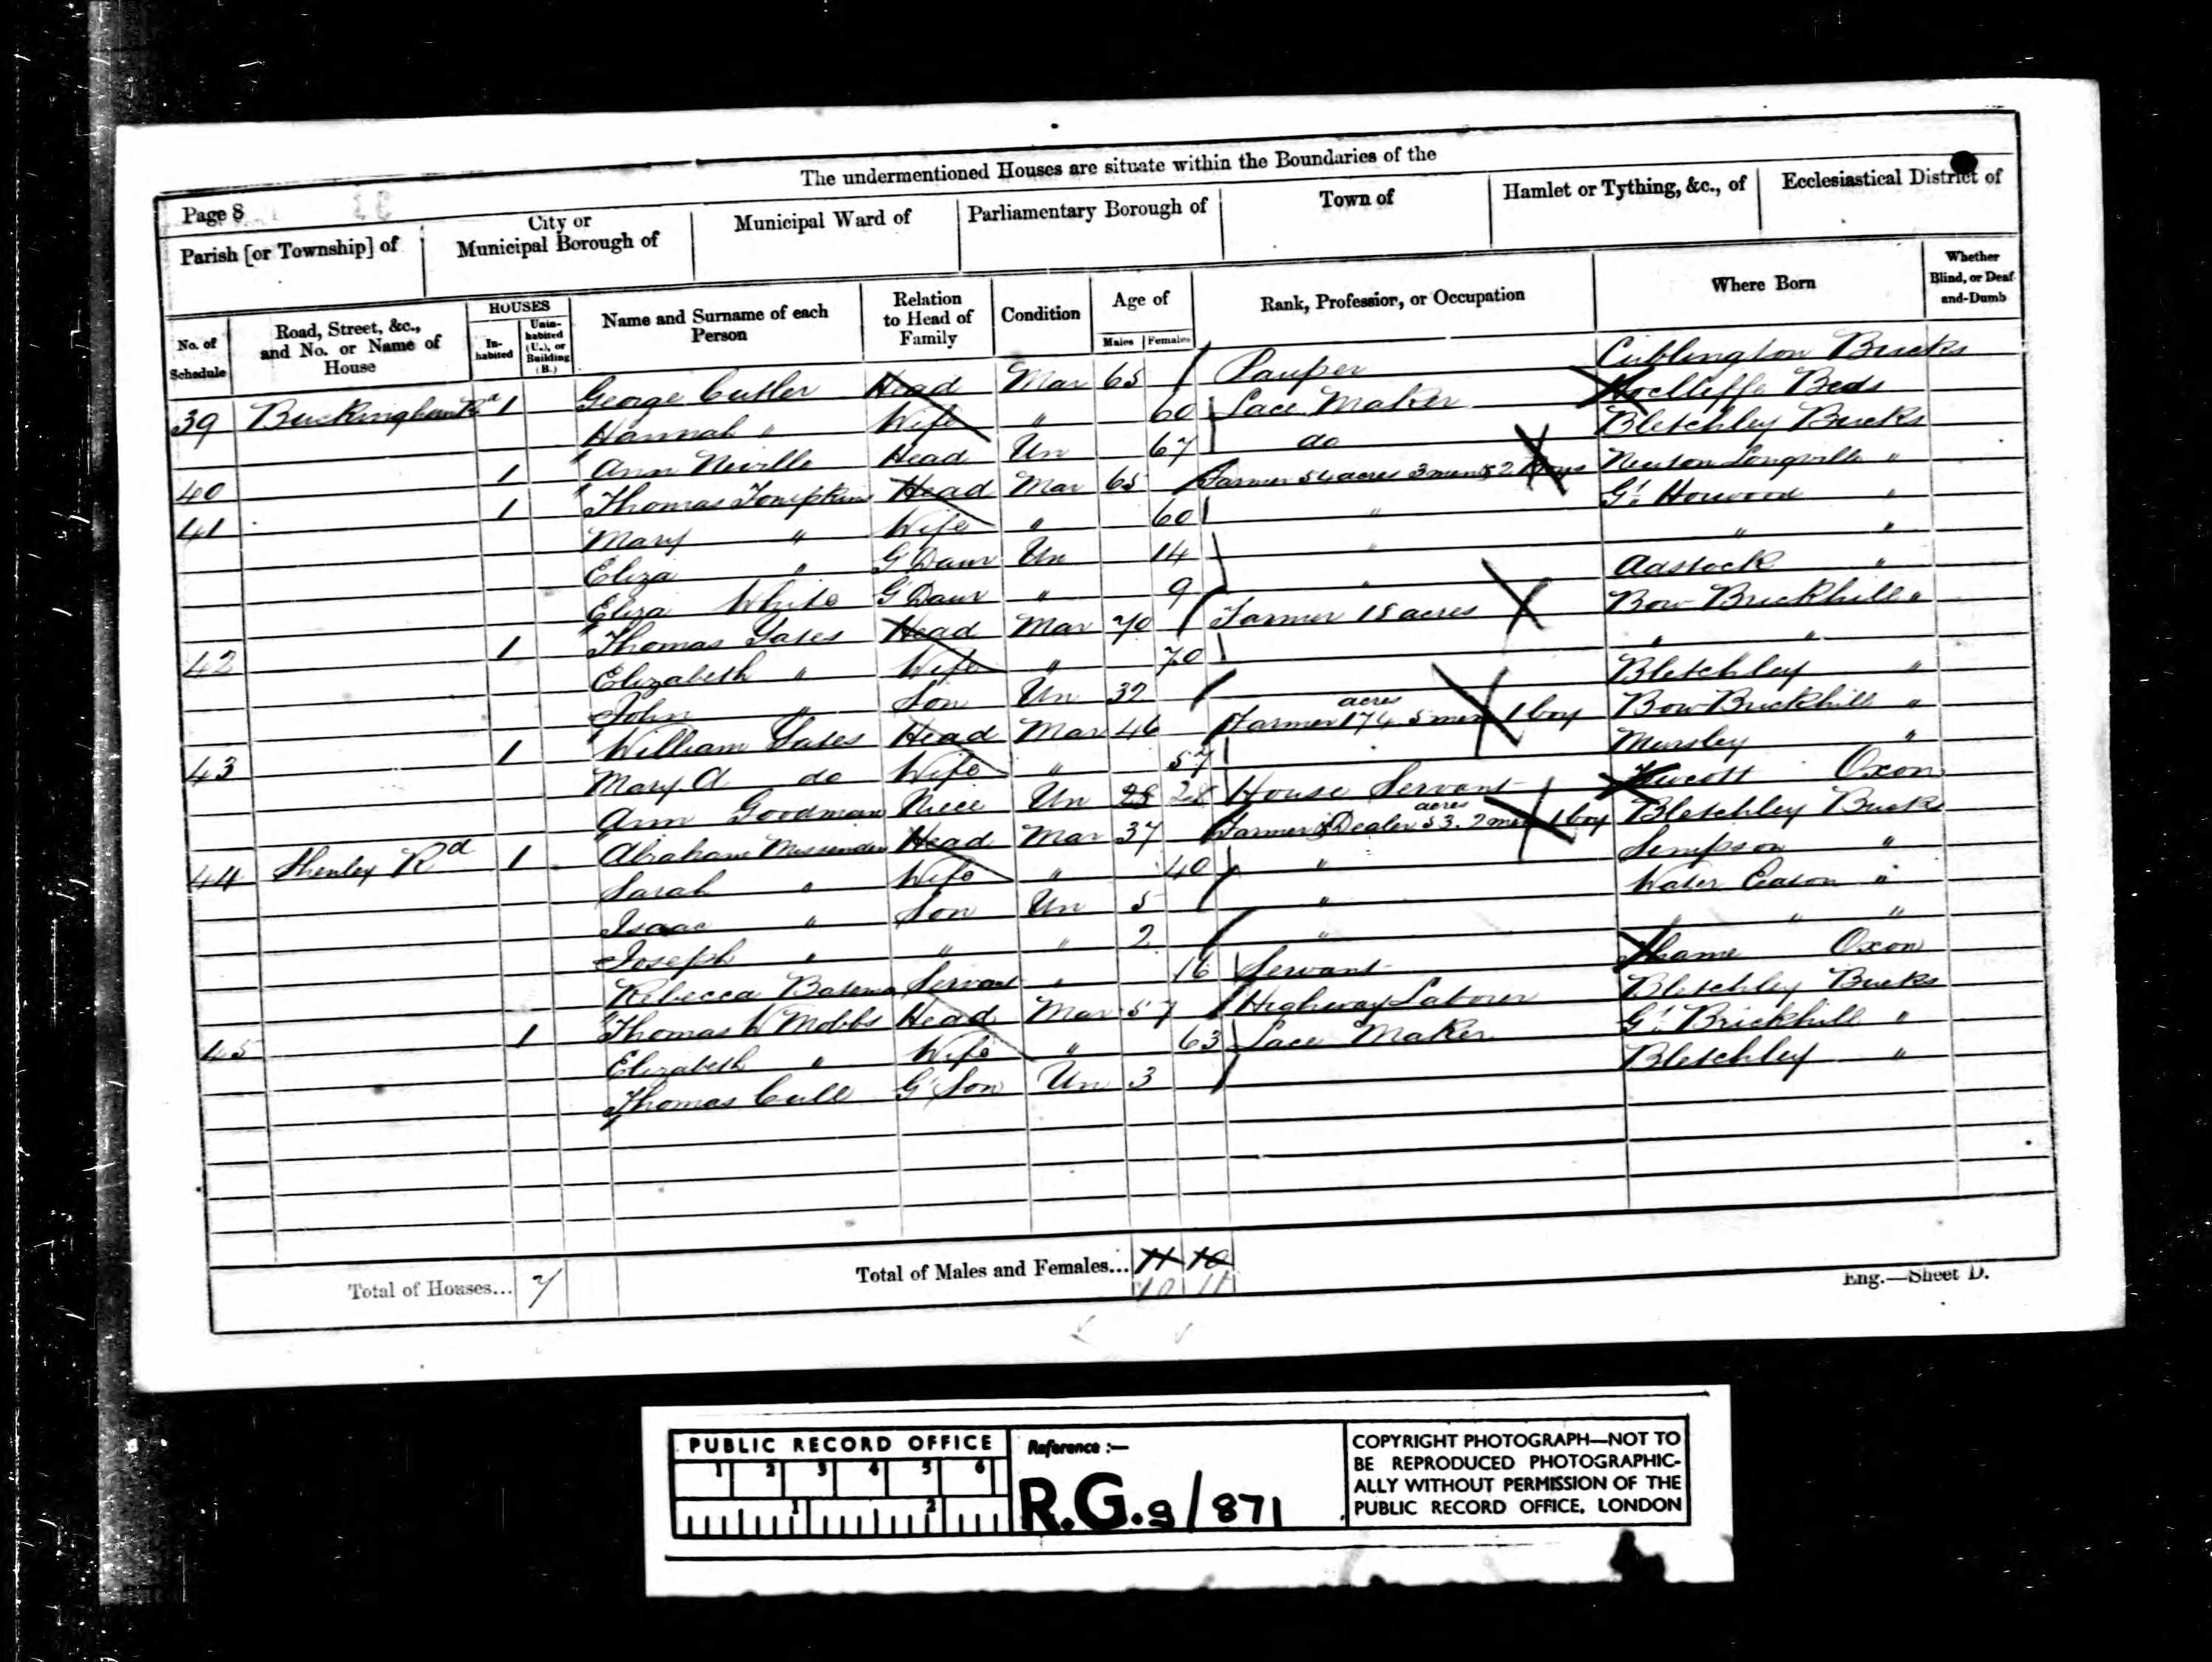 The undermentioned Houses are situate within the Boundaries of the
Page 8
Parish [or Township] of
City or Municipal Borough of
Municipal Ward of
Parliamentary Borough of
Town of
Hamlet or Tything, &c., of
Ecclesiastical District of
No. of Schedule
Road, Street, &c., and No. or Name of House
HOUSES
In-habited
Unin-habited (U.), or Building (B.)
Name and Surname of each Person
Relation to Head of Family
Condition
Age of
Males Females
Rank, Profession, or Occupation
Where Born
Whether Blind, or Deaf-and-Dumb
39 Buckingham Rd 1 George Cutler Head Mar 65 Pauper Cublington Bucks
Hannah " Wife " 60 Lace Maker Hocliffe Beds
40 1 Ann Neville Head Un 67 do Bletchley Bucks
41 1 Thomas Tompkins Head Mar 65 Farmer 54 acres 3 men & 2 boys Newton Longville "
Mary " Wife " 60 " Gt. Horwood "
Eliza " G Daur Un 14 " " "
Eliza White G Daur " 9 " Adstock "
42 1 Thomas Yates Head Mar 70 Farmer 18 acres Bow Brickhill "
Elizabeth " Wife " 70 " "
John " Son Un 32 Bletchley "
43 1 William Yates Head Mar 46 Farmer 174 acres 5 men 1 boy Bow Brickhill "
Mary A do Wife " 57 Mursley "
Ann Goodman Niece Un 28 28 House Servant Oxon
44 Shenley Rd 1 Abraham Missenden Head Mar 37 Farmer & Dealer 53 acres. 2 men 1 boy Bletchley Bucks
Sarah " Wife " 40 " Simpson "
Isaac " Son Un 5 " Water Eaton "
Joseph " " " 2 " " " "
Rebecca Servant " 16 Servant Thame Oxon
45 1 Thomas W Mobbs Head Mar 57 Highway Laborer Bletchley Bucks
Elizabeth " Wife " 63 Lace Maker Gt. Brickhill "
Thomas Cull G Son Un 3 Bletchley "
Total of Houses... 7
Total of Males and Females... 11 10
10 11
Eng.—Sheet D.
PUBLIC RECORD OFFICE
1 2 3 4 5 6
1 2
Reference :—
R.G. 9/871
COPYRIGHT PHOTOGRAPH—NOT TO
BE REPRODUCED PHOTOGRAPHIC-
ALLY WITHOUT PERMISSION OF THE
PUBLIC RECORD OFFICE, LONDON